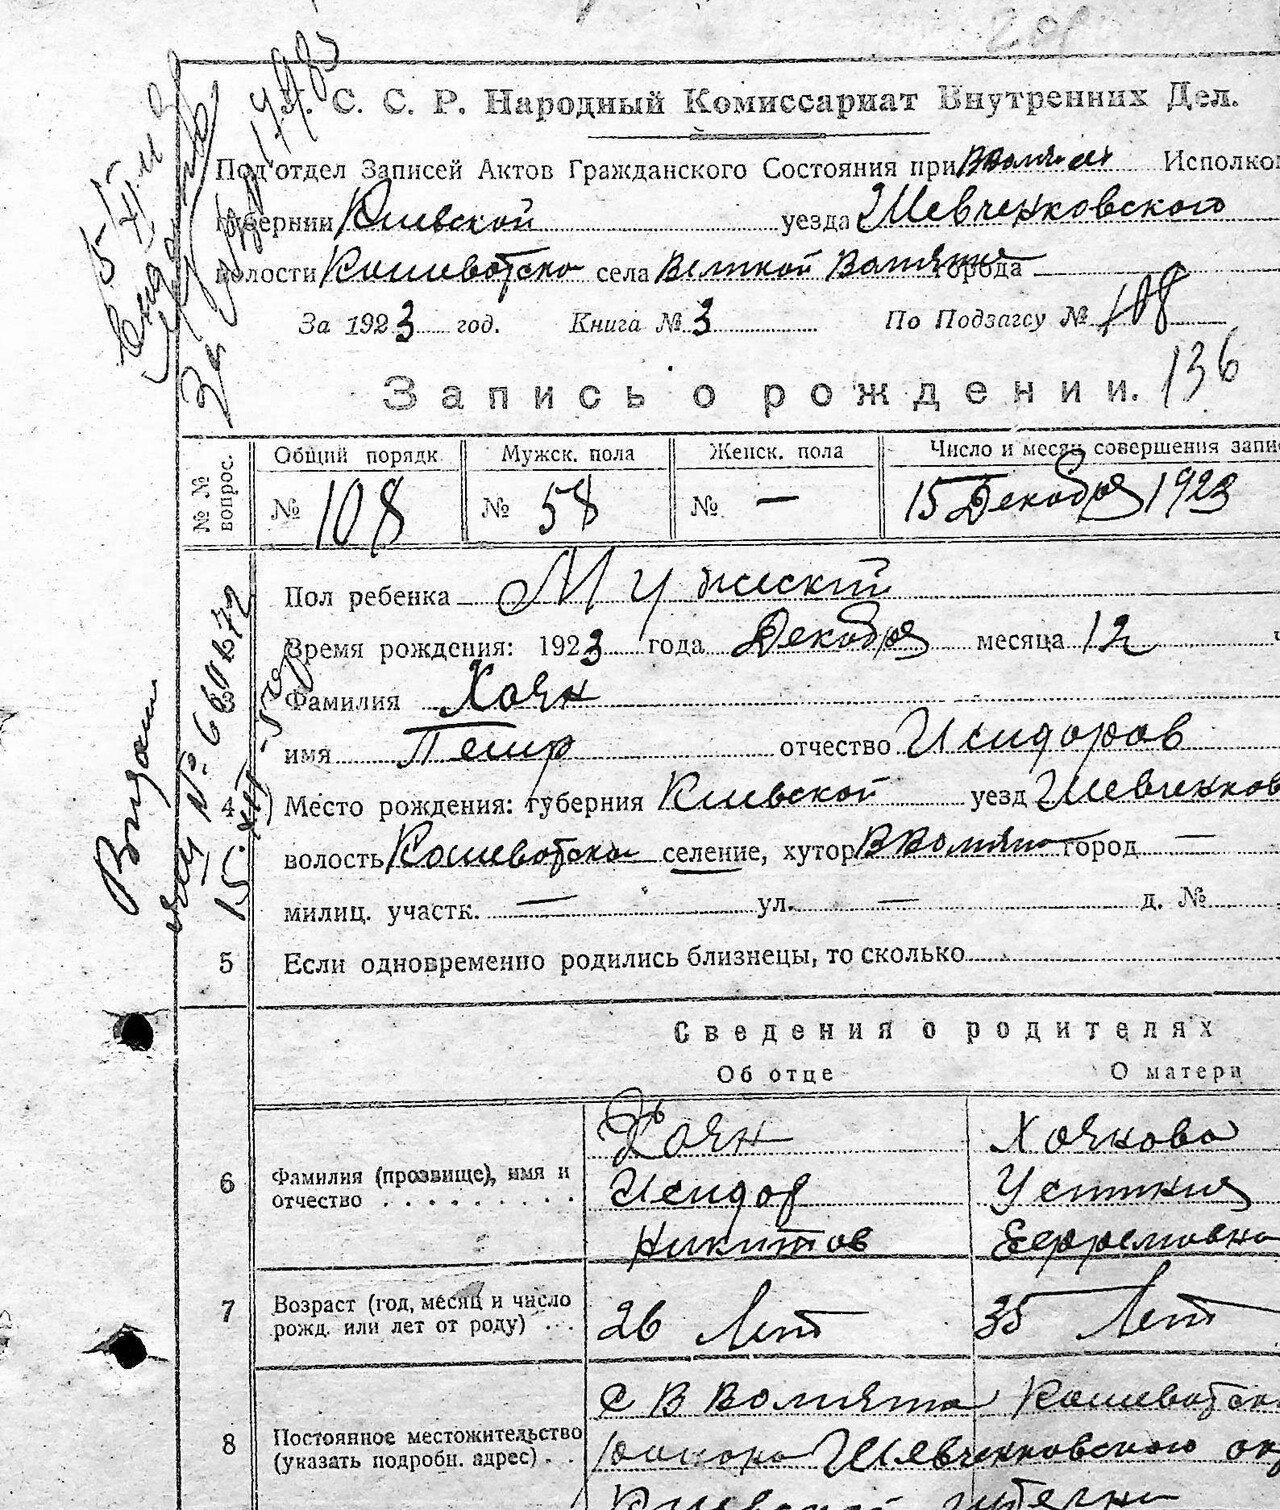 У. С. С. Р. Народный Комиссариат Внутренних Дел.
Под'отдел Записей Актов Гражданского Состояния при Исполко
губернии Киевской уезда Шевченковского
волости Кошеватско села Великой Вовнянке города
За 1923 год. Книга № 3 По Подзагсу № 108
136
Запись о рождении.
№ № вопрос. Общий порядк Мужск. пола Женск. пола Число и месяц совершения запи
№ 108 № 58 № — 15 Декабря 1923
Пол ребенка Мужский
Время рождения: 1923 года Декабря месяца 12
3 Фамилия Хоян
имя Петр отчество Исидоров
4 Место рождения: губерния Киевской уезд Шевченков
волость Кошеватско селение, хутор город —
милиц. участк. — ул. — д. №
5 Если одновременно родились близнецы, то сколько
Сведения о родителях
Об отце О матери
6 Фамилия (прозвище), имя и отчество Хоян Хоянова
Исидор Устиния
Никитов Ефремовна
7 Возраст (год, месяц и число рожд. или лет от роду) 26 Лет 35 Лет
8 Постоянное местожительство (указать подробн. адрес) С В Кошеватско
Шевченковского ок
Киевской губерни
Выдан
№
15